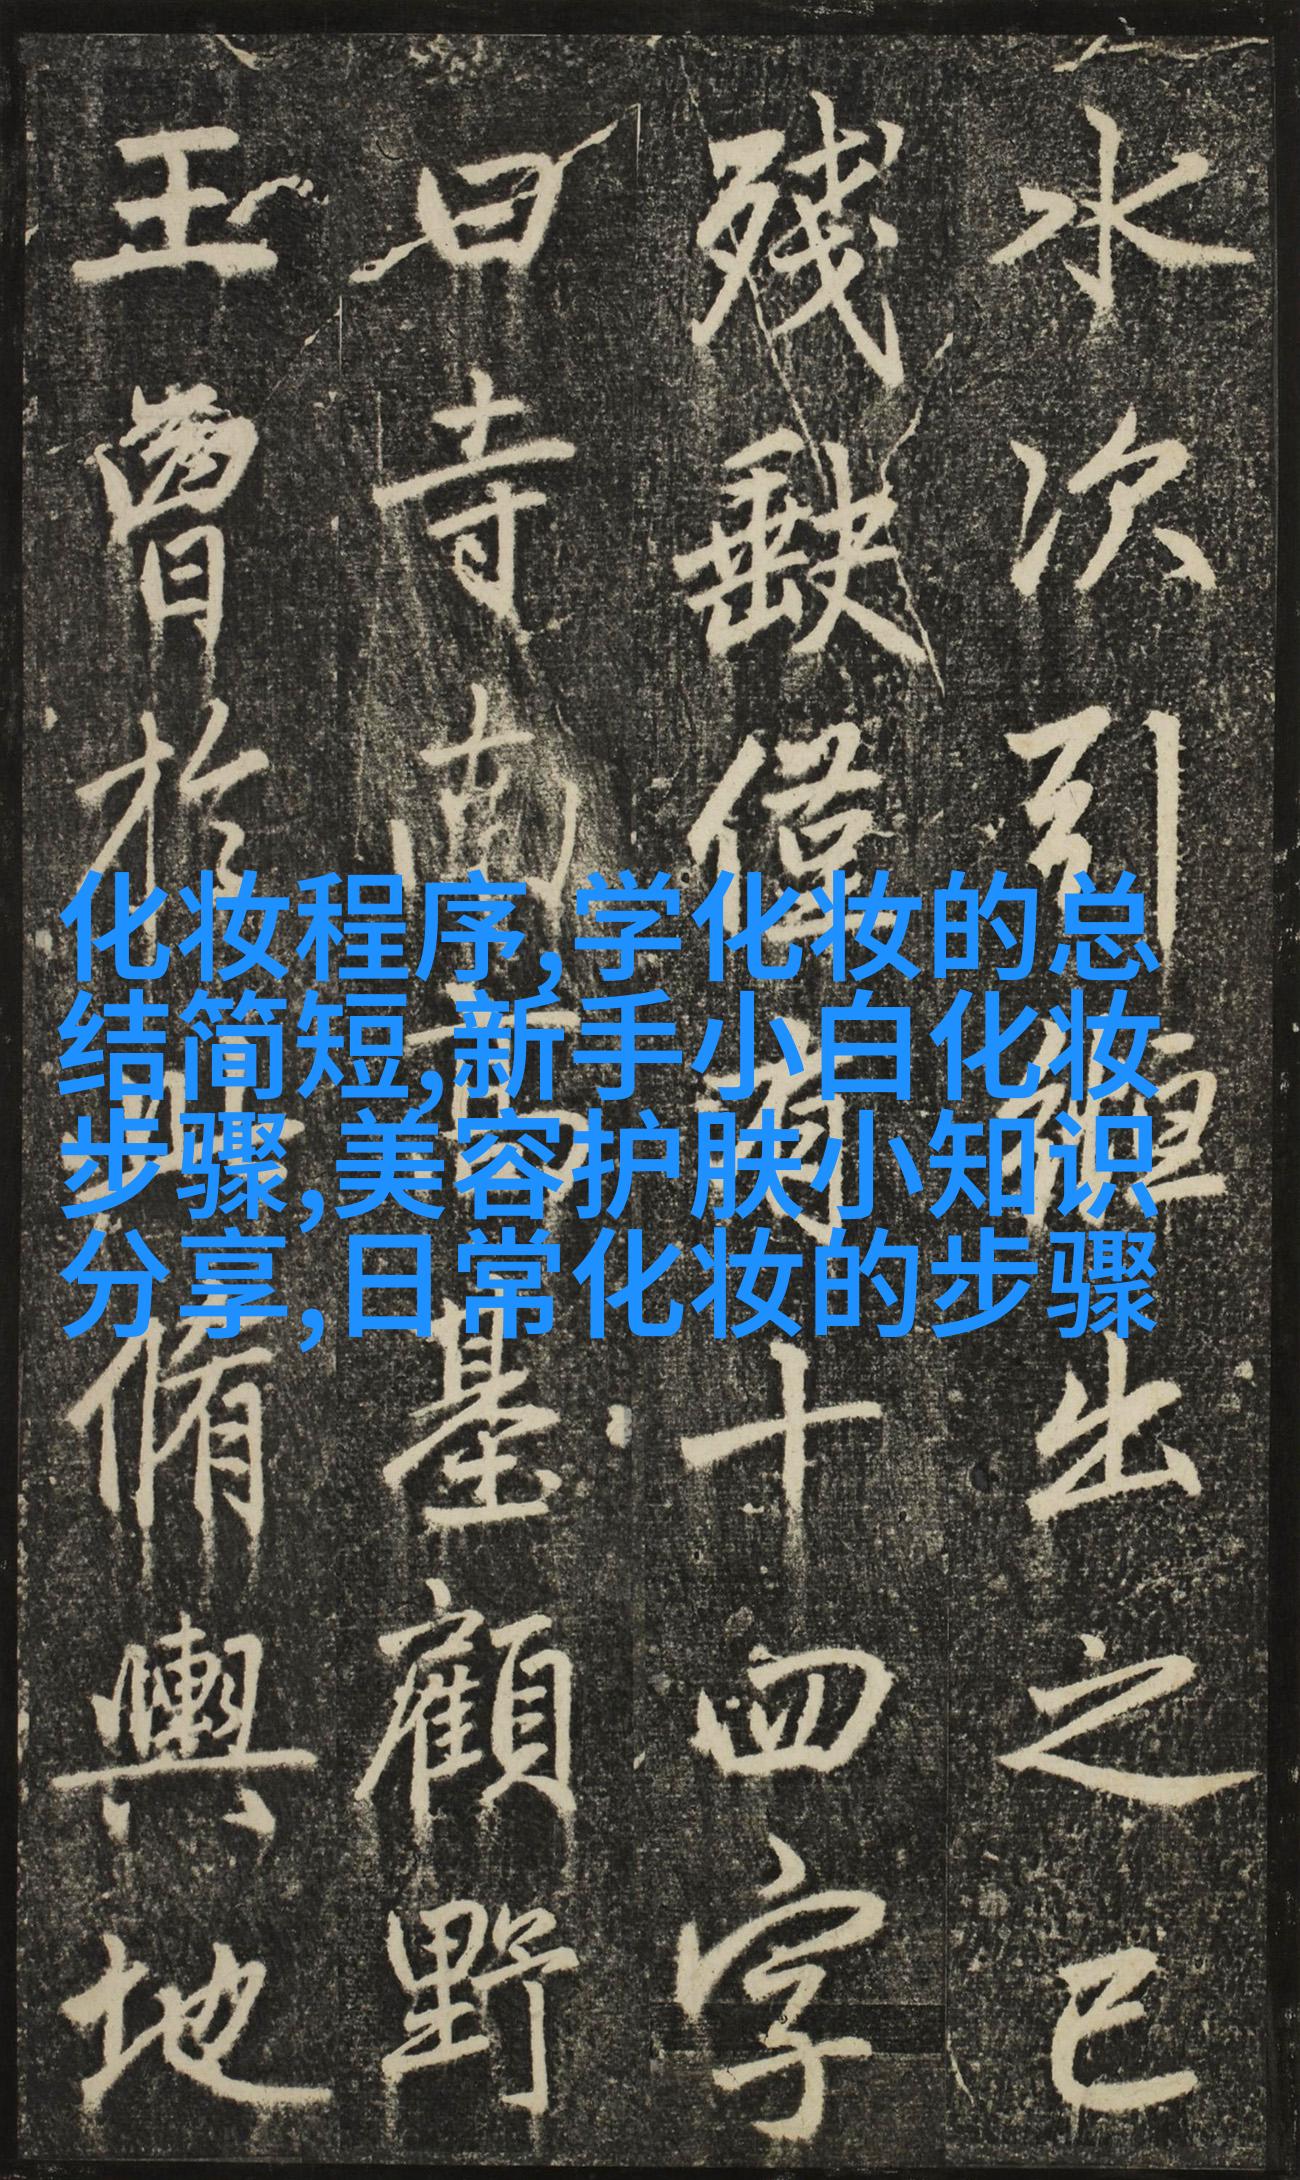 水次引縆出之已
殘缺僅有十四字
曰寺南高基顧野
王曾於此脩輿地
化妆程序,学化妆的总
结简短,新手小白化妆
步骤,美容护肤小知识
分享,日常化妆的步骤